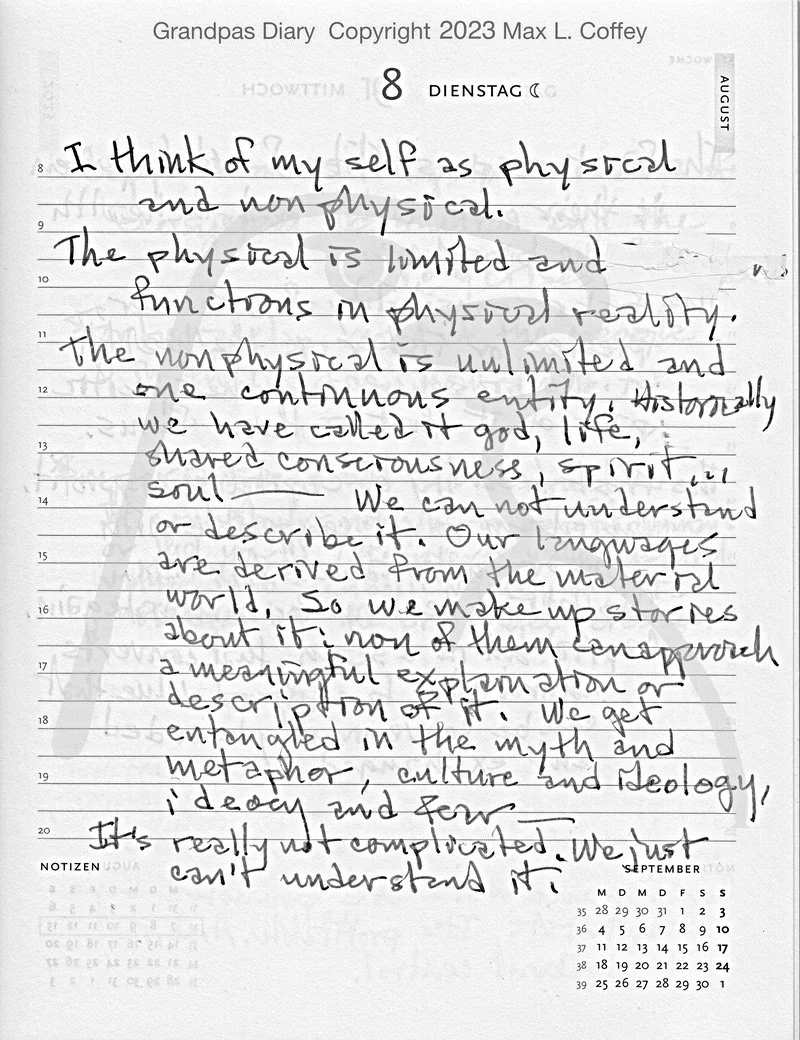 Grandpas Diary Copyright 2023 Max L. Coffey
8 DIENSTAG
AUGUST
8 I think of my self as physical
and non physical.
9
The physical is limited and
10
functions in physical reality.
11
The nonphysical is unlimited and
12
one continuous entity. Historically
we have called it god, life,
13
shared consciousness, spirit...
14
soul — We can not understand
or describe it. Our languages
15
are derived from the material
16
world. So we make up stories
about it: non of them can approach
17
a meaningful explanation or
description of it. We get
18
entangled in the myth and
19
metaphor, culture and ideology,
20
It's really not complicated. We just
can't understand it!
NOTIZEN
SEPTEMBER
M D M D F S S
35 28 29 30 31 1 2 3
36 4 5 6 7 8 9 10
37 11 12 13 14 15 16 17
38 18 19 20 21 22 23 24
39 25 26 27 28 29 30 1